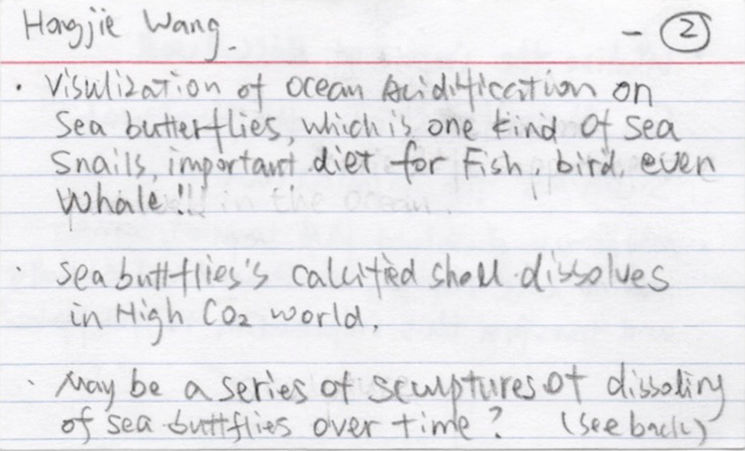 Hongjie Wang. - ②
· Visulization of ocean Acidification on
Sea butterflies, which is one kind of sea
Snails, important diet for Fish, bird, even
Whale!!
· Sea buttflies's calcified shell dissolves
in High CO₂ world.
· May be a series of scwptures of dissoling
of sea buttflies over time? (see back)